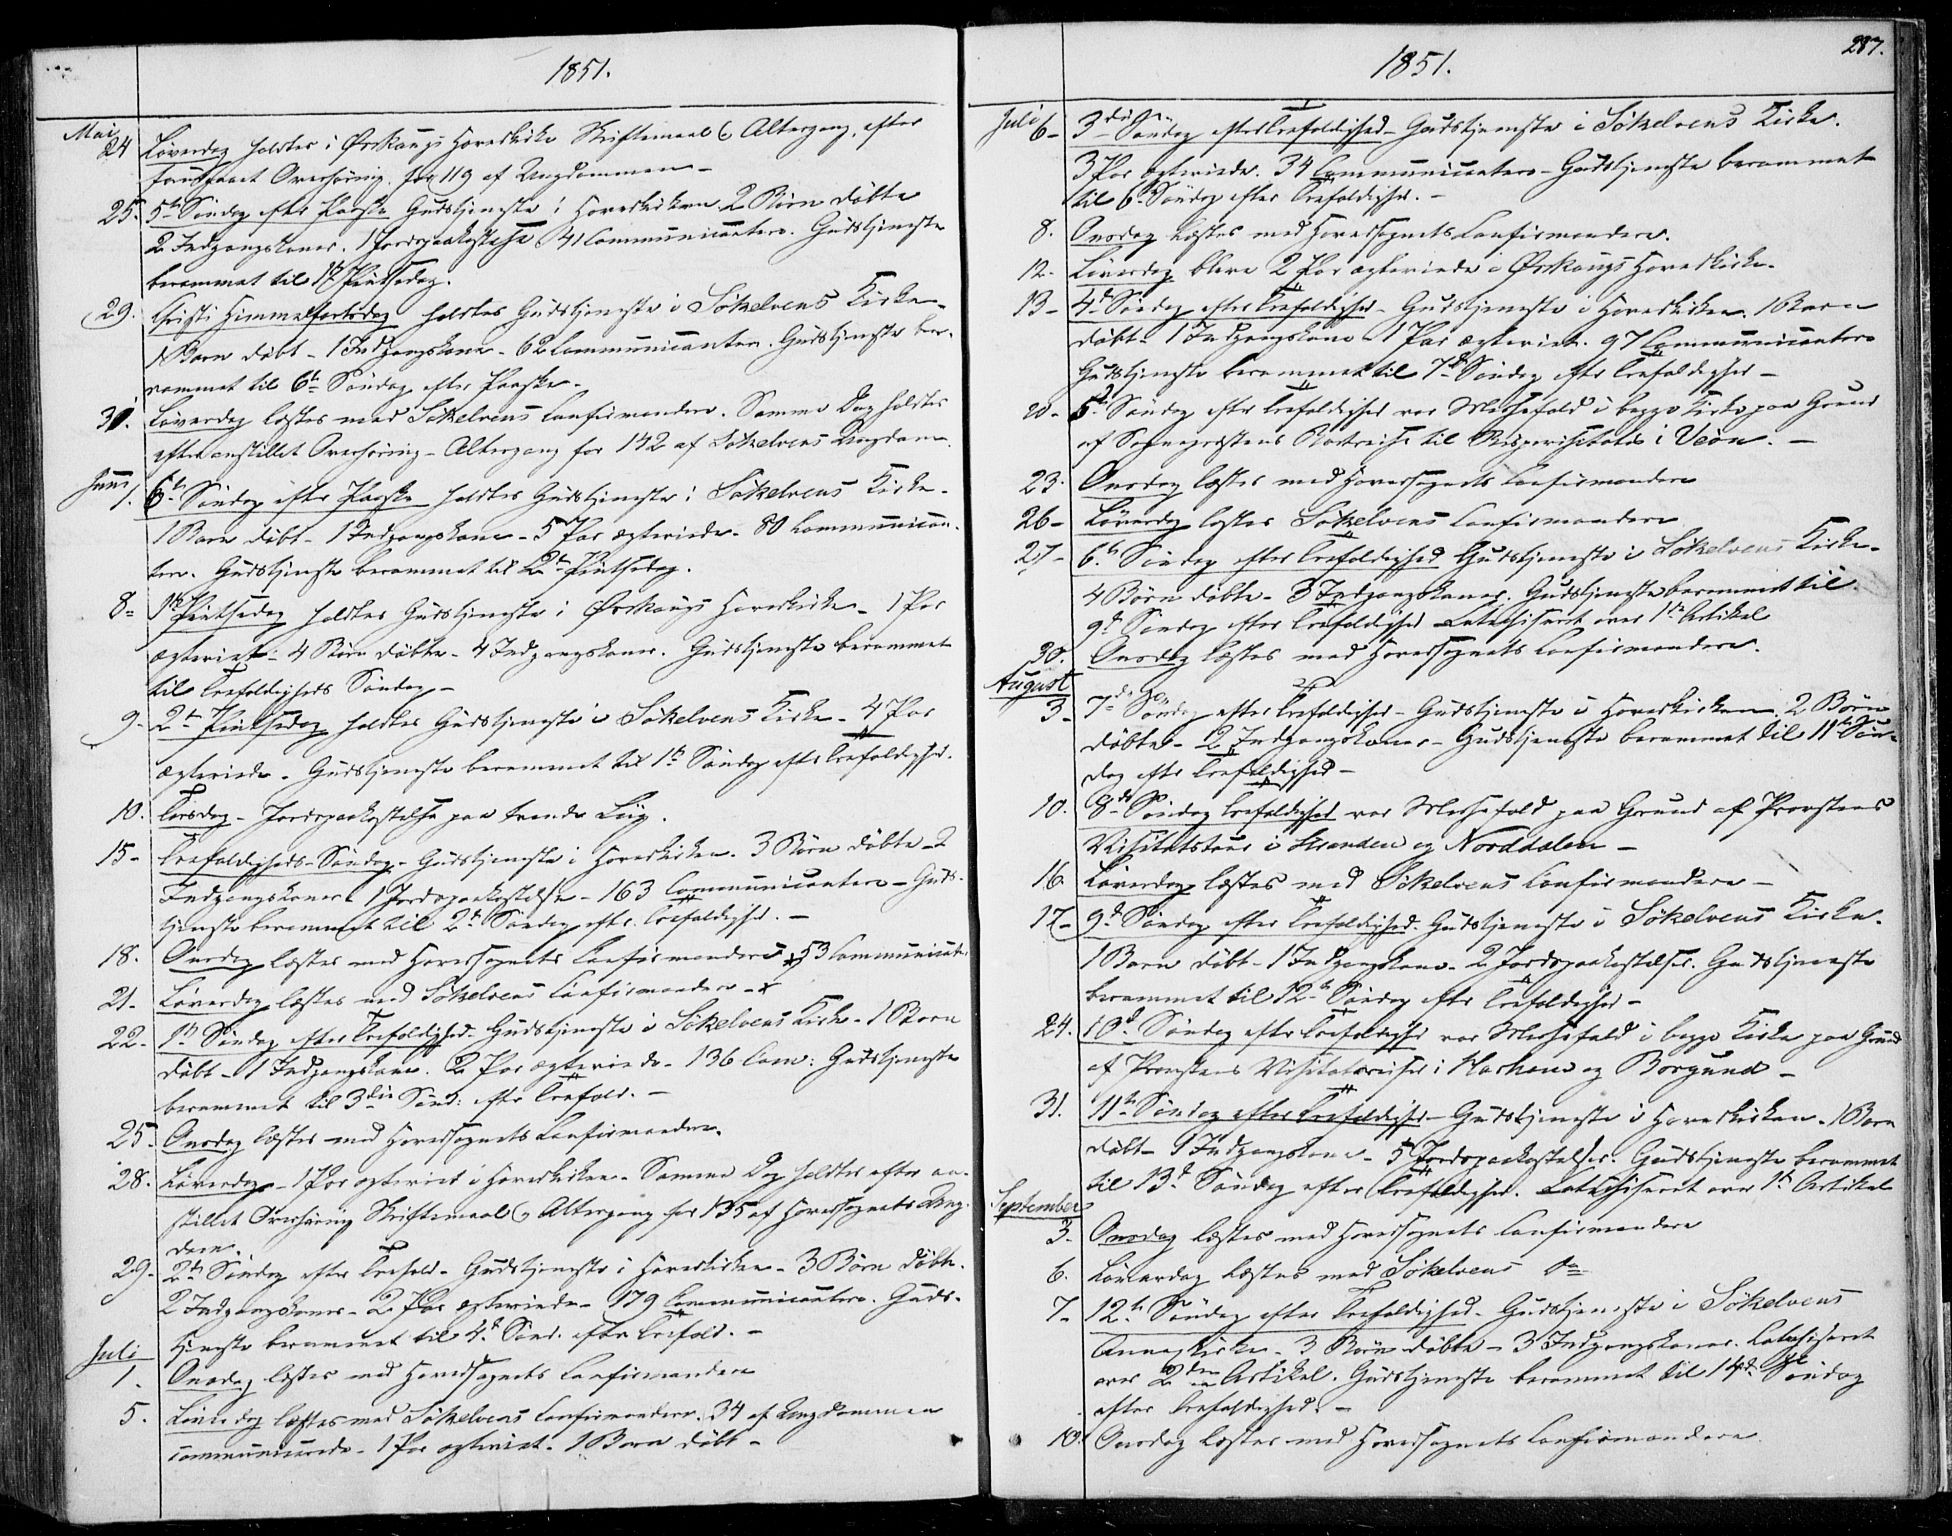 1851.
Mai
24 Løverdag holdtes i Ørskougs Hovedkirke Skriftemaal & Altergang, efter
foretaget Overhøring for 119 af Ungdommen –
25. 5te Søndag efter Paaske Gudstjeneste i Hovedkirken. 2 Børn døbte
2 Indgangskoner. 1 Jordspaakastelse 41 Communicantere. Gudstjeneste
berammet til 1ste Pintsedag.
29. Christi Himmelfartsdag holdtes Gudstjeneste i Søkelvens Kirke –
1 Barn døbt – 1 Indgangskone – 62 Communicanter. Gudstjeneste be-
rammet til 6te Søndag efter Paaske –
31. Løverdag læstes med Søkelvens Confirmandere. Samme Dag holdtes
efter anstillet Overhøring – Altergang for 142 af Søkelvens Ungdom
Juni
1. 6te Søndag efter Paaske holdtes Gudstjeneste i Søkelvens Kirke –
1 Barn døbt – 1 Indgangskone – 5 Par ægteviede – 80 Communican-
tere. Gudstjeneste berammet til 2den Pintsedag.
8– 1ste Pintsedag holdtes Gudstjeneste i Ørskougs Hovedkirke – 1 Par
ægteviet – 4 Børn døbte – 4 Indgangskoner. Gudstjeneste berammet
til Trefoldigheds Søndag –
9– 2den Pintsedag holdtes Gudstjeneste i Søkelvens Kirke – 4 Par
ægteviede – Gudstjeneste berammet til 1ste Søndag efter Trefoldighed.
10. Tirsdag – Jordspaakastelse paa trende Liig.
15– Trefoldigheds-Søndag – Gudstjeneste i Hovedkirken. 3 Børn døbte – 2
Indgangskoner 1 Jordspaakastelse – 163 Communicantere – Guds-
tjeneste berammet til 2den Søndag efter Trefoldighed. –
18. Onsdag læstes med Hovedsognets Confirmandere 53 Communicante
21– Løverdag læstes med Søkelvens Confirmandere –
22– 1ste Søndag efter Trefoldighed. Gudstjeneste i Søkelvens Kirke – 1 Barn
døbt – 1 Indgangskone. 2 Par ægteviede – 136 Com: Gudstjeneste
berammet til 3die Sønd: efter Trefold. –
25. Onsdag læstes med Hovedsognets Confirmandere.
28. Løverdag – 1 Par ægteviet i Hovedkirken – Samme Dag holdtes efter an-
stillet Overhøring Skriftemaal & Altergang for 135 af Hovedsognets Ung-
dom.
29– 2den Søndag efter Trefold – Gudstjeneste i Hovedkirken – 3 Børn døbte.
2 Indgangskoner – 2 Par ægteviede – 179 Communicantere. Guds-
tjeneste berammet til 4de Sønd. efter Trefold. –
Juli
1– Onsdag læstes med Hovedsognets Confirmandere
5. Løverdag læstes med Søkelvens Confirmandere. 34 af Ungdommen
communicerede – 1 Par ægteviet – 1 Barn døbt –
287.
1851.
Juli 6– 3die Søndag efter Trefoldighed – Gudstjeneste i Søkelvens Kirke.
3 Par ægteviede. 34 Communicantere – Gudstjeneste berammet
til 6te Søndag efter Trefoldighed. –
8. Onsdag læstes med Hovedsognets Confirmandere.
12. Løverdag bleve 2 Par ægteviede i Ørskougs Hovedkirke.
13– 4de Søndag efter Trefoldighed – Gudstjeneste i Hovedkirken. 1 Barn
døbt – 1 Indgangskone 1 Par ægteviet. 97 Communicantere
Gudstjeneste berammet til 7de Søndag efter Trefoldighed –
20– 5te Søndag efter Trefoldighed var Messefald i begge Kirker paa Grund
af Sognepræstens Bortreise til Bispevisitats i Veøen. –
23. Onsdag læstes med Hovedsognets Confirmandere
26– Løverdag læstes Søkelvens Confirmandere
27– 6te Søndag efter Trefoldighed Gudstjeneste i Søkelvens Kirke.
4 Børn døbte – 3 Indgangskoner. Gudstjeneste berammet til
9de Søndag efter Trefoldighed Catechiseret over 1ste Artikel
30. Onsdag læstes med Hovedsognets Confirmandere.
August
3– 7de Søndag efter Trefoldighed – Gudstjeneste i Hovedkirken 2 Børn
døbte – 2 Indgangskoner – Gudstjeneste berammet til 11te Søn-
dag efter Trefoldighed –
10. 8de Søndag Trefoldighed var Messefald paa Grund af Provstens
Visitatstour i Stranden og Norddalen –
16. Løverdag læstes med Søkelvens Confirmandere –
17– 9de Søndag efter Trefoldighed. Gudstjeneste i Søkelvens Kirke.
1 Barn døbt – 1 Indgangskone – 2 Jordspaakastelser. Gudstjeneste
berammet til 12te Søndag efter Trefoldighed –
24. 10de Søndag efter Trefoldighed var Messefald i begge Kirker paa Grund
af Provstens Visitatsreise i Harham og Borgund –
31. 11te Søndag efter Trefoldighed – Gudstjeneste i Hovedkirken. 1 Barn
døbt – 1 Indgangskone – 5 Jordspaakastelser. Gudstjeneste berammet
til 13de Søndag efter Trefoldighed. Catechiseret over 1ste Artikel
September
3. Onsdag læstes med Hovedsognets Confirmandere
6. Løverdag læstes med Søkelvens do
7– 12te Søndag efter Trefoldighed – Gudstjeneste i Søkelvens
Annexkirke – 3 Børn døbte – 3 Indgangskoner. Catechiseret
over 2den Artikel. Gudstjeneste berammet til 14de Søndag
efter Trefoldighed. –
10. Onsdag læstes med Hovedsognets Confirmandere.